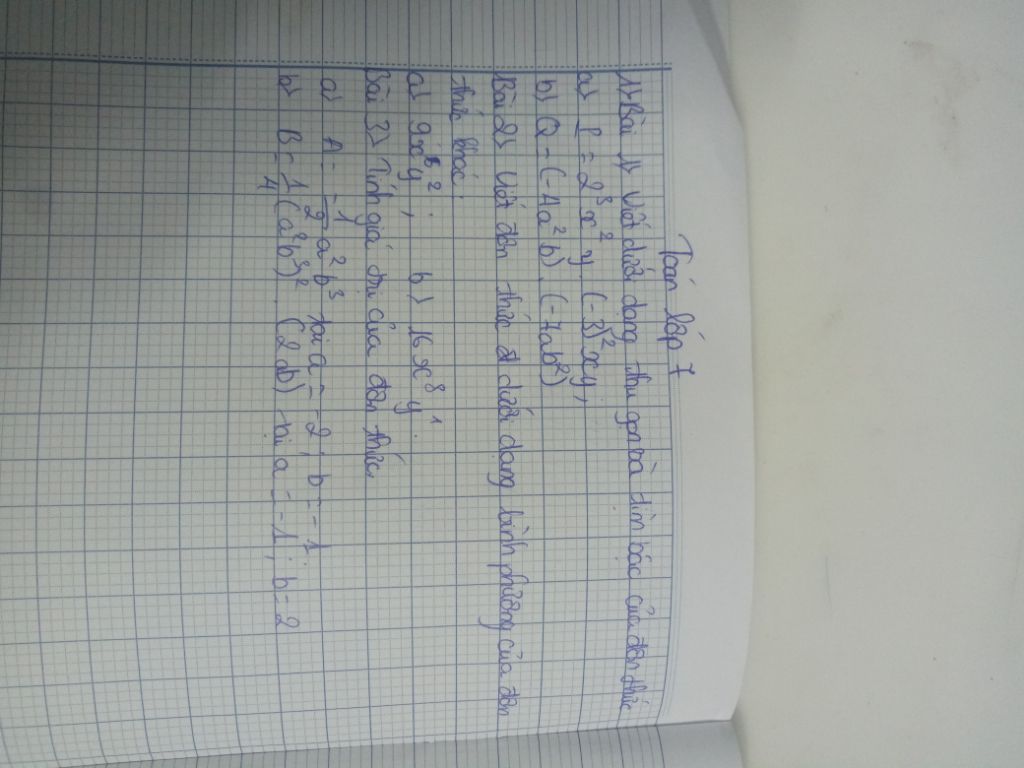 Toán lớp 7
1) Bài 1) Viết dưới dạng thu gọn và tìm bậc của đơn thức
a) P = 2³x²y . (-3)²xy;
b) Q = (-4a²b) . (-7ab²)
Bài 2) Viết đơn thức đ dưới dạng bình phương của đơn
thức khác.
a) 9x⁸y²; b) 16x⁸y⁴.
Bài 3) Tính giá trị của đơn thức
a) A = -1/2 a²b³ tại a = -2; b = -1
b) B = 1/4 (a²b³)² . (2ab) tại a = -1; b = 2